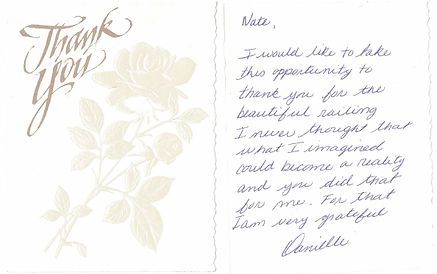 Thank
You
Nate,
I would like to take
this opportunity to
thank you for the
beautiful railing
I never thought that
what I imagined
could become a reality
and you did that
for me. For that
I am very grateful
Danielle